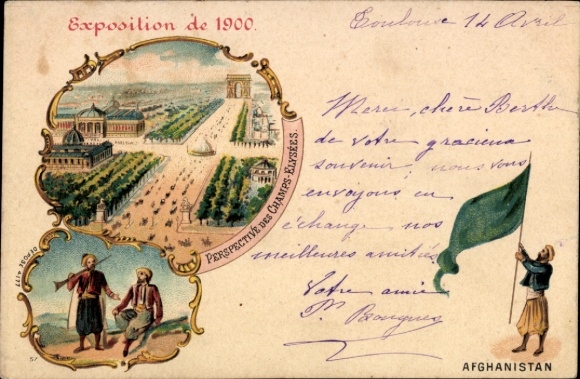 Exposition de 1900.
Toulouse 14 Avril
Merci, chère Berthe
de votre gracieux
souvenir, nous vous
envoyons en
échange nos
meilleures amitiés
Votre amie
PERSPECTIVE DES CHAMPS-ELYSÉES.
DEPOSE
57
AFGHANISTAN